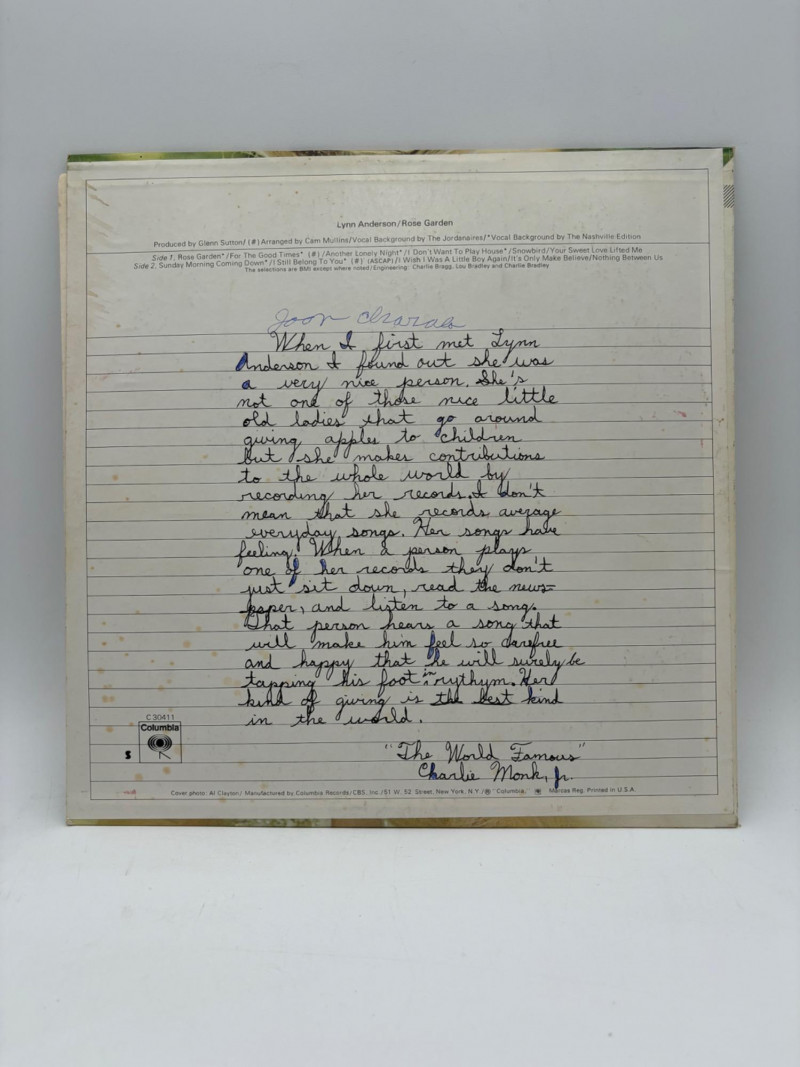 Lynn Anderson/Rose Garden
Produced by Glenn Sutton/ (#) Arranged by Cam Mullins/Vocal Background by The Jordanaires/*Vocal Background by The Nashville Edition
Side 1. Rose Garden*/For The Good Times* (#)/Another Lonely Night*/I Don't Want To Play House*/Snowbird/Your Sweet Love Lifted Me
Side 2. Sunday Morning Coming Down*/I Still Belong To You* (#) (ASCAP)/I Wish I Was A Little Boy Again/It's Only Make Believe/Nothing Between Us
The selections are BMI except where noted/Engineering: Charlie Bragg, Lou Bradley and Charlie Bradley
When I first met Lynn
Anderson I found out she was
a very nice person. She's
not one of those nice little
old ladies that go around
giving apples to children
but she makes contributions
to the whole world by
recording her records. I don't
mean that she records average
everyday songs. Her songs have
feeling! When a person plays
one of her records they don't
just sit down, read the news=
paper, and listen to a song.
That person hears a song that
will make him feel so carefree
and happy that he will surely be
tapping his foot in rythym. Her
kind of giving is the best kind
in the world.
"The World Famous"
Charlie Monk, Jr.
C 30411
Columbia
S
Cover photo: Al Clayton/ Manufactured by Columbia Records/CBS, Inc./51 W. 52 Street, New York, N.Y./® "Columbia," Marcas Reg. Printed in U.S.A.